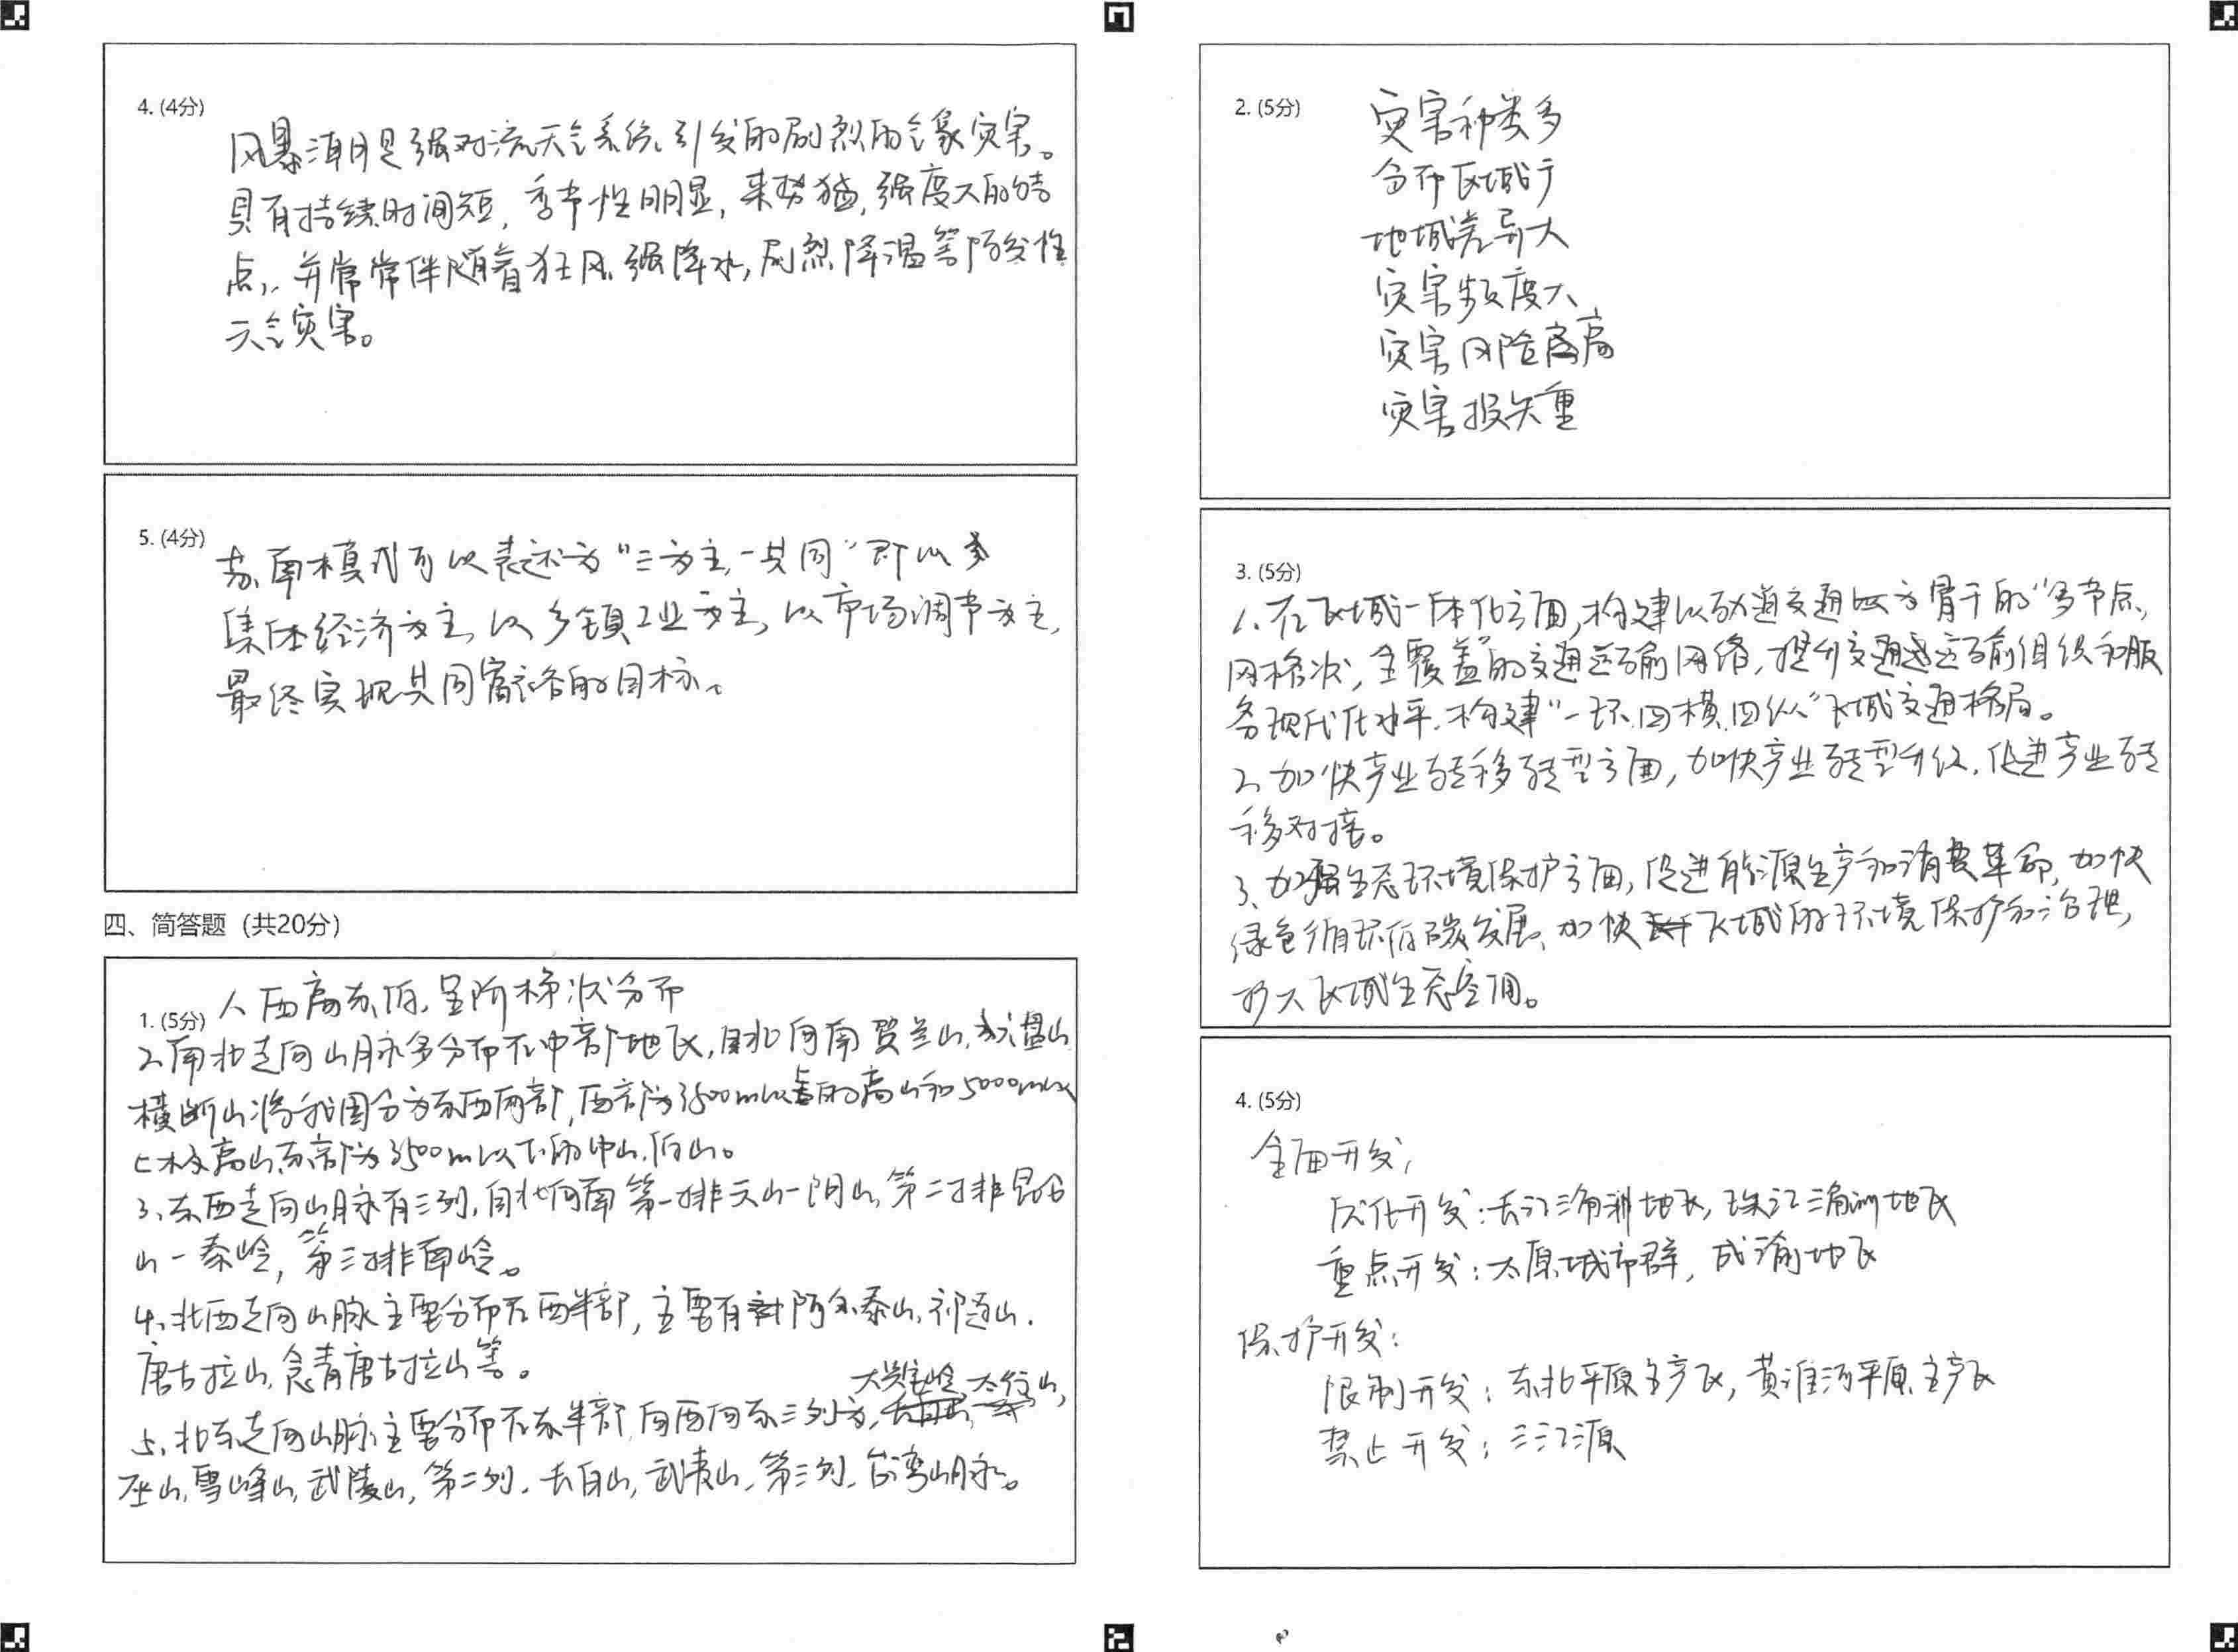 4. (4分)
风暴潮是强对流天气系统引发的剧烈的气象灾害。
具有持续时间短，季节性明显，来势猛，强度大的特
点，并常常伴随着狂风、强降水，剧烈降温等阵发性
天气灾害。
5. (4分)
苏南模式可以表述为“三为主，一共同”即以
集体经济为主，以乡镇工业为主，以市场调节为主，
最终实现共同富裕的目标。
四、简答题（共20分）
1. (5分) 1、西高东低，呈阶梯状分布
2、南北走向山脉多分布在中部地区，自北向南贺兰山，六盘山
横断山将我国分为东西两部，西部为3500m以上的高山和5000m以
上极高山，东部为3500m以下的中山、低山。
3、东西走向山脉有三列，自北向南第一排天山—阴山，第二排昆仑
山—秦岭，第三排南岭。
4、北西走向山脉主要分布在西半部，主要有阿尔泰山、祁连山、
唐古拉山，念青唐古拉山等。
5、北东走向山脉主要分布在东半部，自西向东三列为，大兴安岭，太行山，
巫山，雪峰山，武陵山，第二列，长白山，武夷山，第三列，台湾山脉。
2. (5分)
灾害种类多
分布区域广
地域差异大
灾害频度大
灾害风险高
灾害损失重
3. (5分)
1、在区域一体化方面，构建以轨道交通为骨干的“多节点，
网格状，全覆盖”的交通运输网络，提升交通运输组织和服
务现代化水平，构建“一环四横四纵”区域交通格局。
2、加快产业转移转型方面，加快产业转型升级，促进产业转
移对接。
3、加强生态环境保护方面，促进能源生产和消费革命，加快
绿色循环低碳发展、加快区域的环境保护和治理，
扩大区域生态空间。
4. (5分)
全面开发；
优化开发：长江三角洲地区，珠江三角洲地区
重点开发：太原城市群，成渝地区
保护开发：
限制开发：东北平原主产区，黄淮海平原主产区
禁止开发：三江源